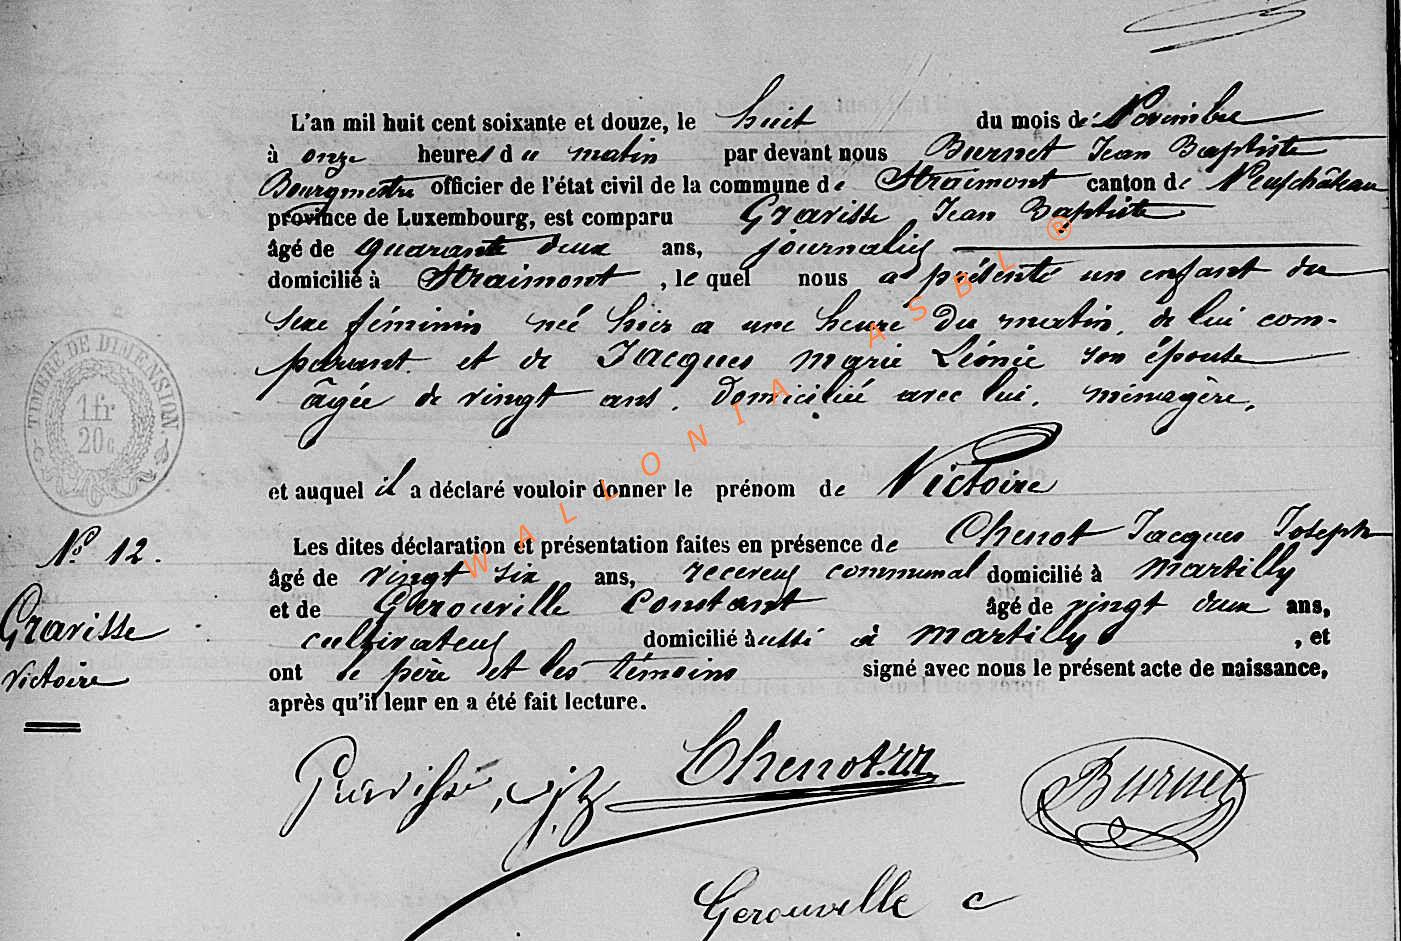 L'an mil huit cent soixante et douze, le huit du mois de Novembre
à onze heures du matin par devant nous Burnet Jean Baptiste
Bourgmestre officier de l'état civil de la commune de Straimont canton de Neufchâteau
province de Luxembourg, est comparu Gravisse Jean Baptiste
âgé de quarante deux ans, journalier
domicilié à Straimont, lequel nous a présenté un enfant du
sexe féminin née hier a une heure du matin, de lui com-
parant et de Jacques Marie Léonie son épouse
âgée de vingt ans, domiciliée avec lui, ménagère,
et auquel il a déclaré vouloir donner le prénom de Victoire
Les dites déclaration et présentation faites en présence de Chenot Jacques Joseph
âgé de vingt six ans, receveur communal domicilié à Martilly
et de Gerouville Constant âgé de vingt deux ans,
cultivateur domicilié aussi à Martilly, et
ont le père et les témoins signé avec nous le présent acte de naissance,
après qu'il leur en a été fait lecture.
TIMBRE DE DIMENSION.
1 fr
20 c
No. 12.
Gravisse
Victoire
Gravisse, j b Chenot. J.J. Burnet
Gerouville C
WALLONIA ASBL ®